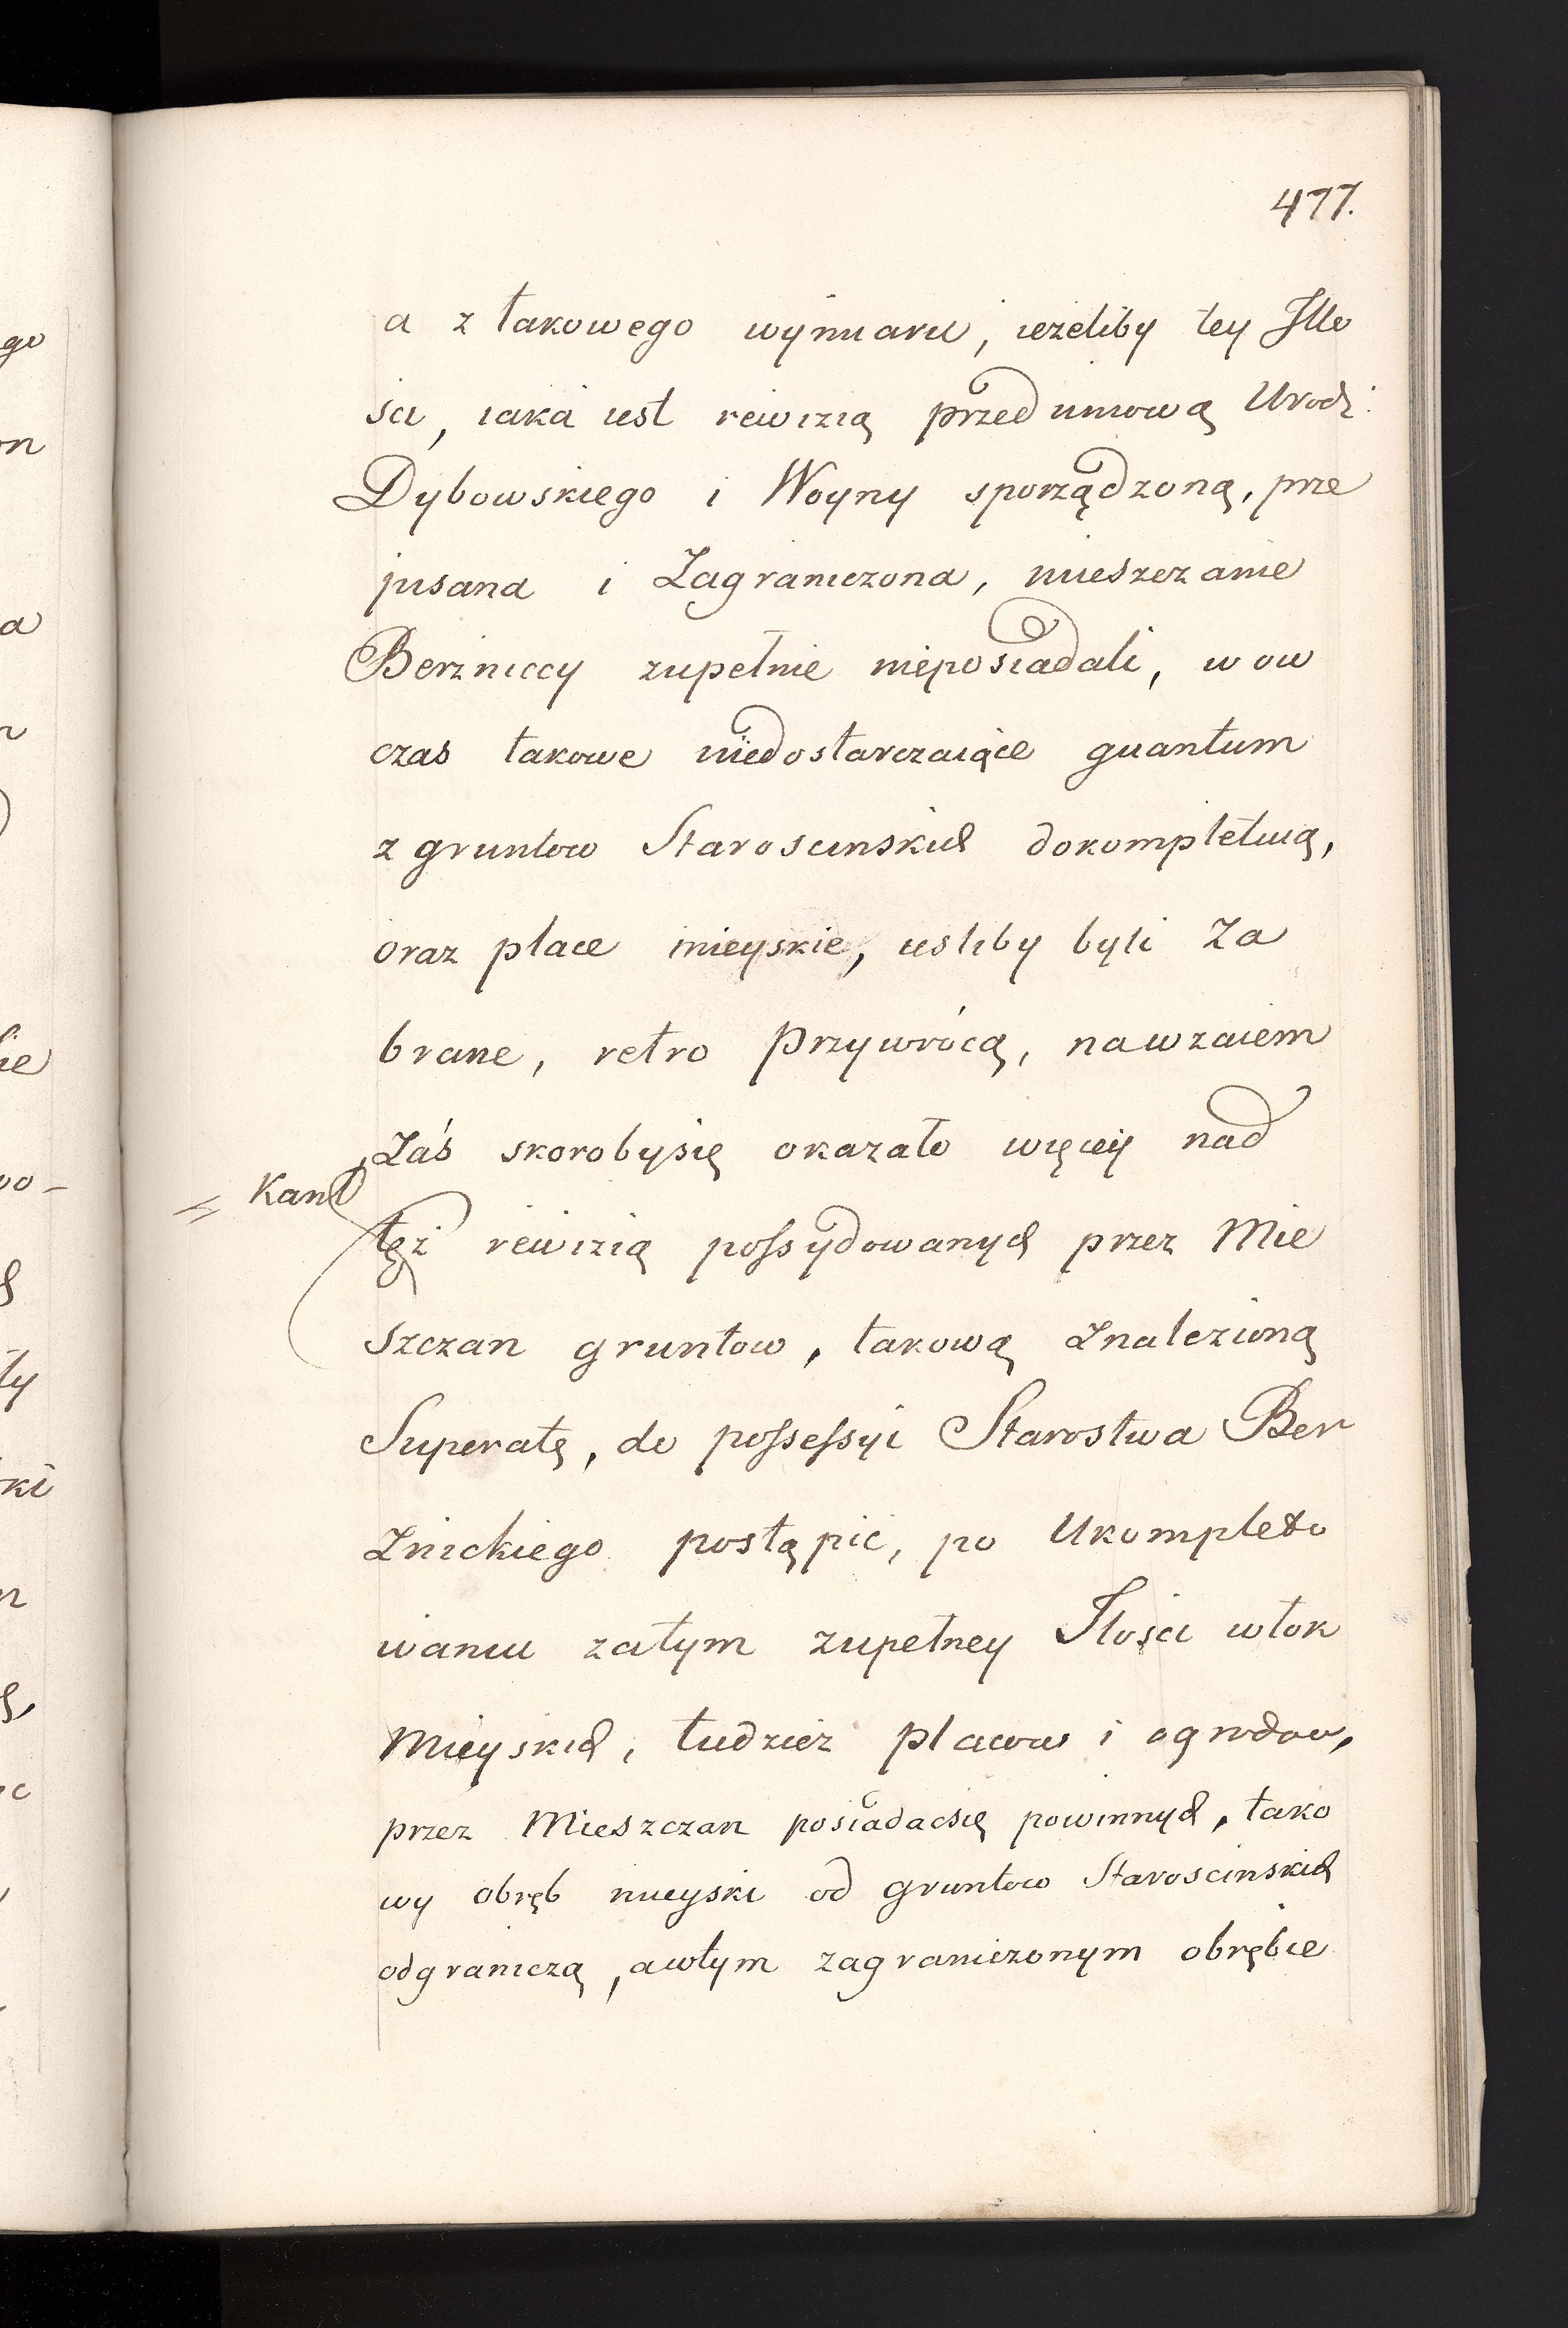 477.
a z takowego wymiaru, ieżeliby tey Jllo
ści, iaka iest rewizią przed umową Urodz:
Dybowskiego i Woyny sporządzoną, prze
pisana i Zagraniczona, mieszczanie
Berzniccy zupełnie nieposiadali, w ow
czas takowe niedostarczaiące quantum
z gruntow Staroscinskich dokompletuią,
oraz place mieyskie, iesliby byli Za
brane, retro przywrócą, nawzaiem
Zaś skorobysię okazało więcey nad
= Kant
tęż rewizią possydowanych przez Mie
szczan gruntow, takową Znalezioną
Superatę, do possessyi Starostwa Ber
Znickiego postąpić, po Ukompleto
waniu zatym zupełney Jlości włok
Mieyskich, tudzież placow i ogrodow,
przez Mieszczan posiadacsię powinnych, tako
wy obręb mieyski od gruntow Staroscinskich
odgraniczą, awtym zagraniczonym obrębie